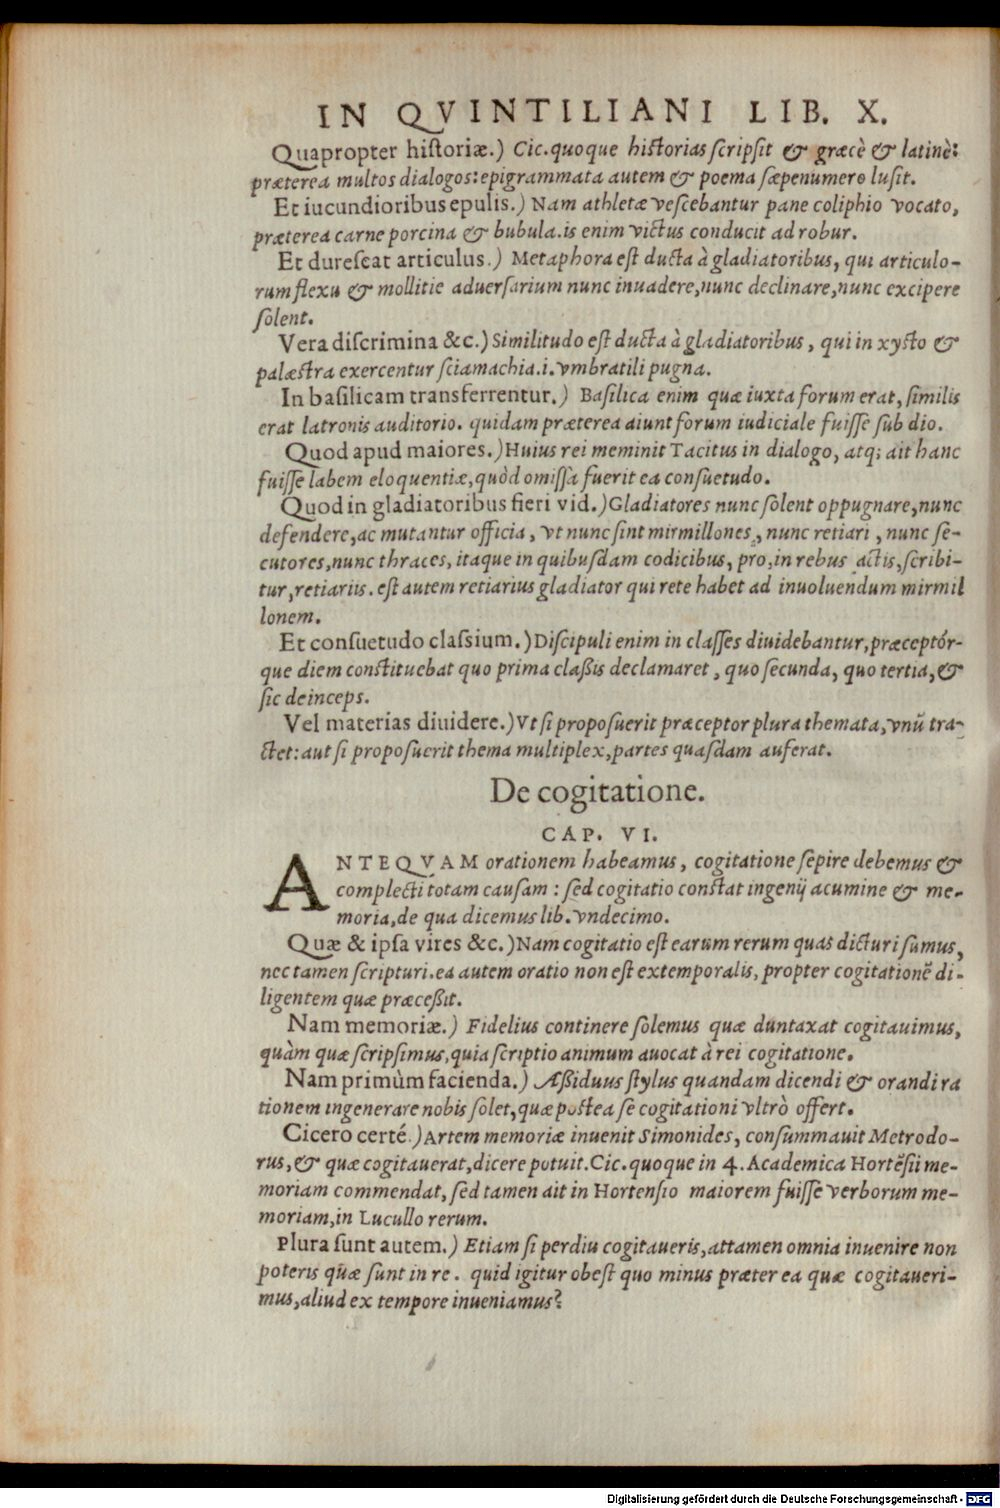 IN QVINTILIANI LIB. X.
Quapropter hiſtoriæ.) Cic. quoque hiſtorias ſcripſit & græcè & latinè:
præterea multos dialogos: epigrammata autem & poema ſæpenumero luſit.
Et iucundioribus epulis.) Nam athletæ veſcebantur pane coliphio vocato,
præterea carne porcina & bubula. is enim victus conducit ad robur.
Et dureſcat articulus.) Metaphora eſt ducta à gladiatoribus, qui articulo-
rum flexu & mollitie aduerſarium nunc inuadere, nunc declinare, nunc excipere
ſolent.
Vera diſcrimina &c.) Similitudo eſt ducta à gladiatoribus, qui in xyſto &
palæſtra exercentur ſciamachia .i. vmbratili pugna.
In baſilicam transferrentur.) Baſilica enim quæ iuxta forum erat, ſimilis
erat latronis auditorio. quidam præterea aiunt forum iudiciale fuiſſe ſub dio.
Quod apud maiores.) Huius rei meminit Tacitus in dialogo, atq; ait hanc
fuiſſe labem eloquentiæ, quòd omiſſa fuerit ea conſuetudo.
Quod in gladiatoribus fieri vid.) Gladiatores nunc ſolent oppugnare, nunc
defendere, ac mutantur officia, vt nunc ſint mirmillones, nunc retiari, nunc ſe-
cutores, nunc thraces, itaque in quibuſdam codicibus, pro, in rebus actis, ſcribi-
tur, retiariis. eſt autem retiarius gladiator qui rete habet ad inuoluendum mirmil
lonem.
Et conſuetudo claſsium.) Diſcipuli enim in claſſes diuidebantur, præceptór-
que diem conſtituebat quo prima claßis declamaret, quo ſecunda, quo tertia, &
ſic deinceps.
Vel materias diuidere.) Vt ſi propoſuerit præceptor plura themata, vnũ tra-
ctet: aut ſi propoſuerit thema multiplex, partes quaſdam auferat.
De cogitatione.
CAP. VI.
ANTEQVAM orationem habeamus, cogitatione ſepire debemus &
complecti totam cauſam: ſed cogitatio conſtat ingenij acumine & me-
moria, de qua dicemus lib. vndecimo.
Quæ & ipſa vires &c.) Nam cogitatio eſt earum rerum quas dicturi ſumus,
nec tamen ſcripturi. ea autem oratio non eſt extemporalis, propter cogitationẽ di-
ligentem quæ præceßit.
Nam memoriæ.) Fidelius continere ſolemus quæ duntaxat cogitauimus,
quàm quæ ſcripſimus, quia ſcriptio animum auocat à rei cogitatione.
Nam primùm facienda.) Aßiduus ſtylus quandam dicendi & orandi ra
tionem ingenerare nobis ſolet, quæ poſtea ſe cogitationi vltrò offert.
Cicero certé.) Artem memoriæ inuenit Simonides, conſummauit Metrodo-
rus, & quæ cogitauerat, dicere potuit. Cic. quoque in 4. Academica Hortẽſii me-
moriam commendat, ſed tamen ait in Hortenſio maiorem fuiſſe verborum me-
moriam, in Lucullo rerum.
Plura ſunt autem.) Etiam ſi perdiu cogitaueris, attamen omnia inuenire non
poteris quæ ſunt in re. quid igitur obeſt quo minus præter ea quæ cogitaueri-
mus, aliud ex tempore inueniamus?
Digitalisierung gefördert durch die Deutsche Forschungsgemeinschaft - DFG